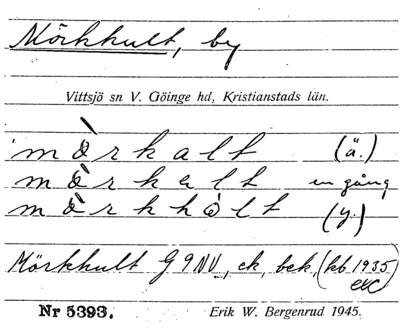 Mörkhult, by
Vittsjö sn V. Göinge hd, Kristianstads län.
mö̀rkalt (ä.)
mö̀rkelt en gång
mö̀rkhòlt (y.)
Mörkhult G 9 NV, ek, bek, (kb 1935
exc)
Nr 5393. Erik W. Bergenrud 1945.